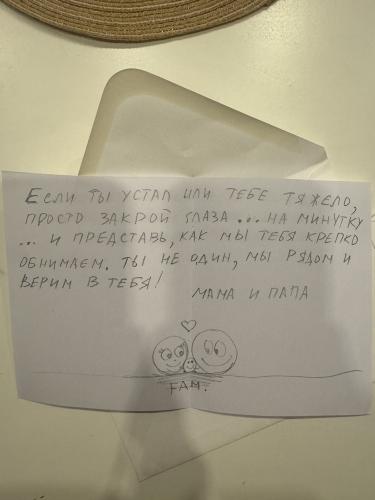 Если ты устал или тебе тяжело,
просто закрой глаза ... на минутку
... и представь, как мы тебя крепко
обнимаем. Ты не один, мы рядом и
верим в тебя!
мама и папа
FAM.